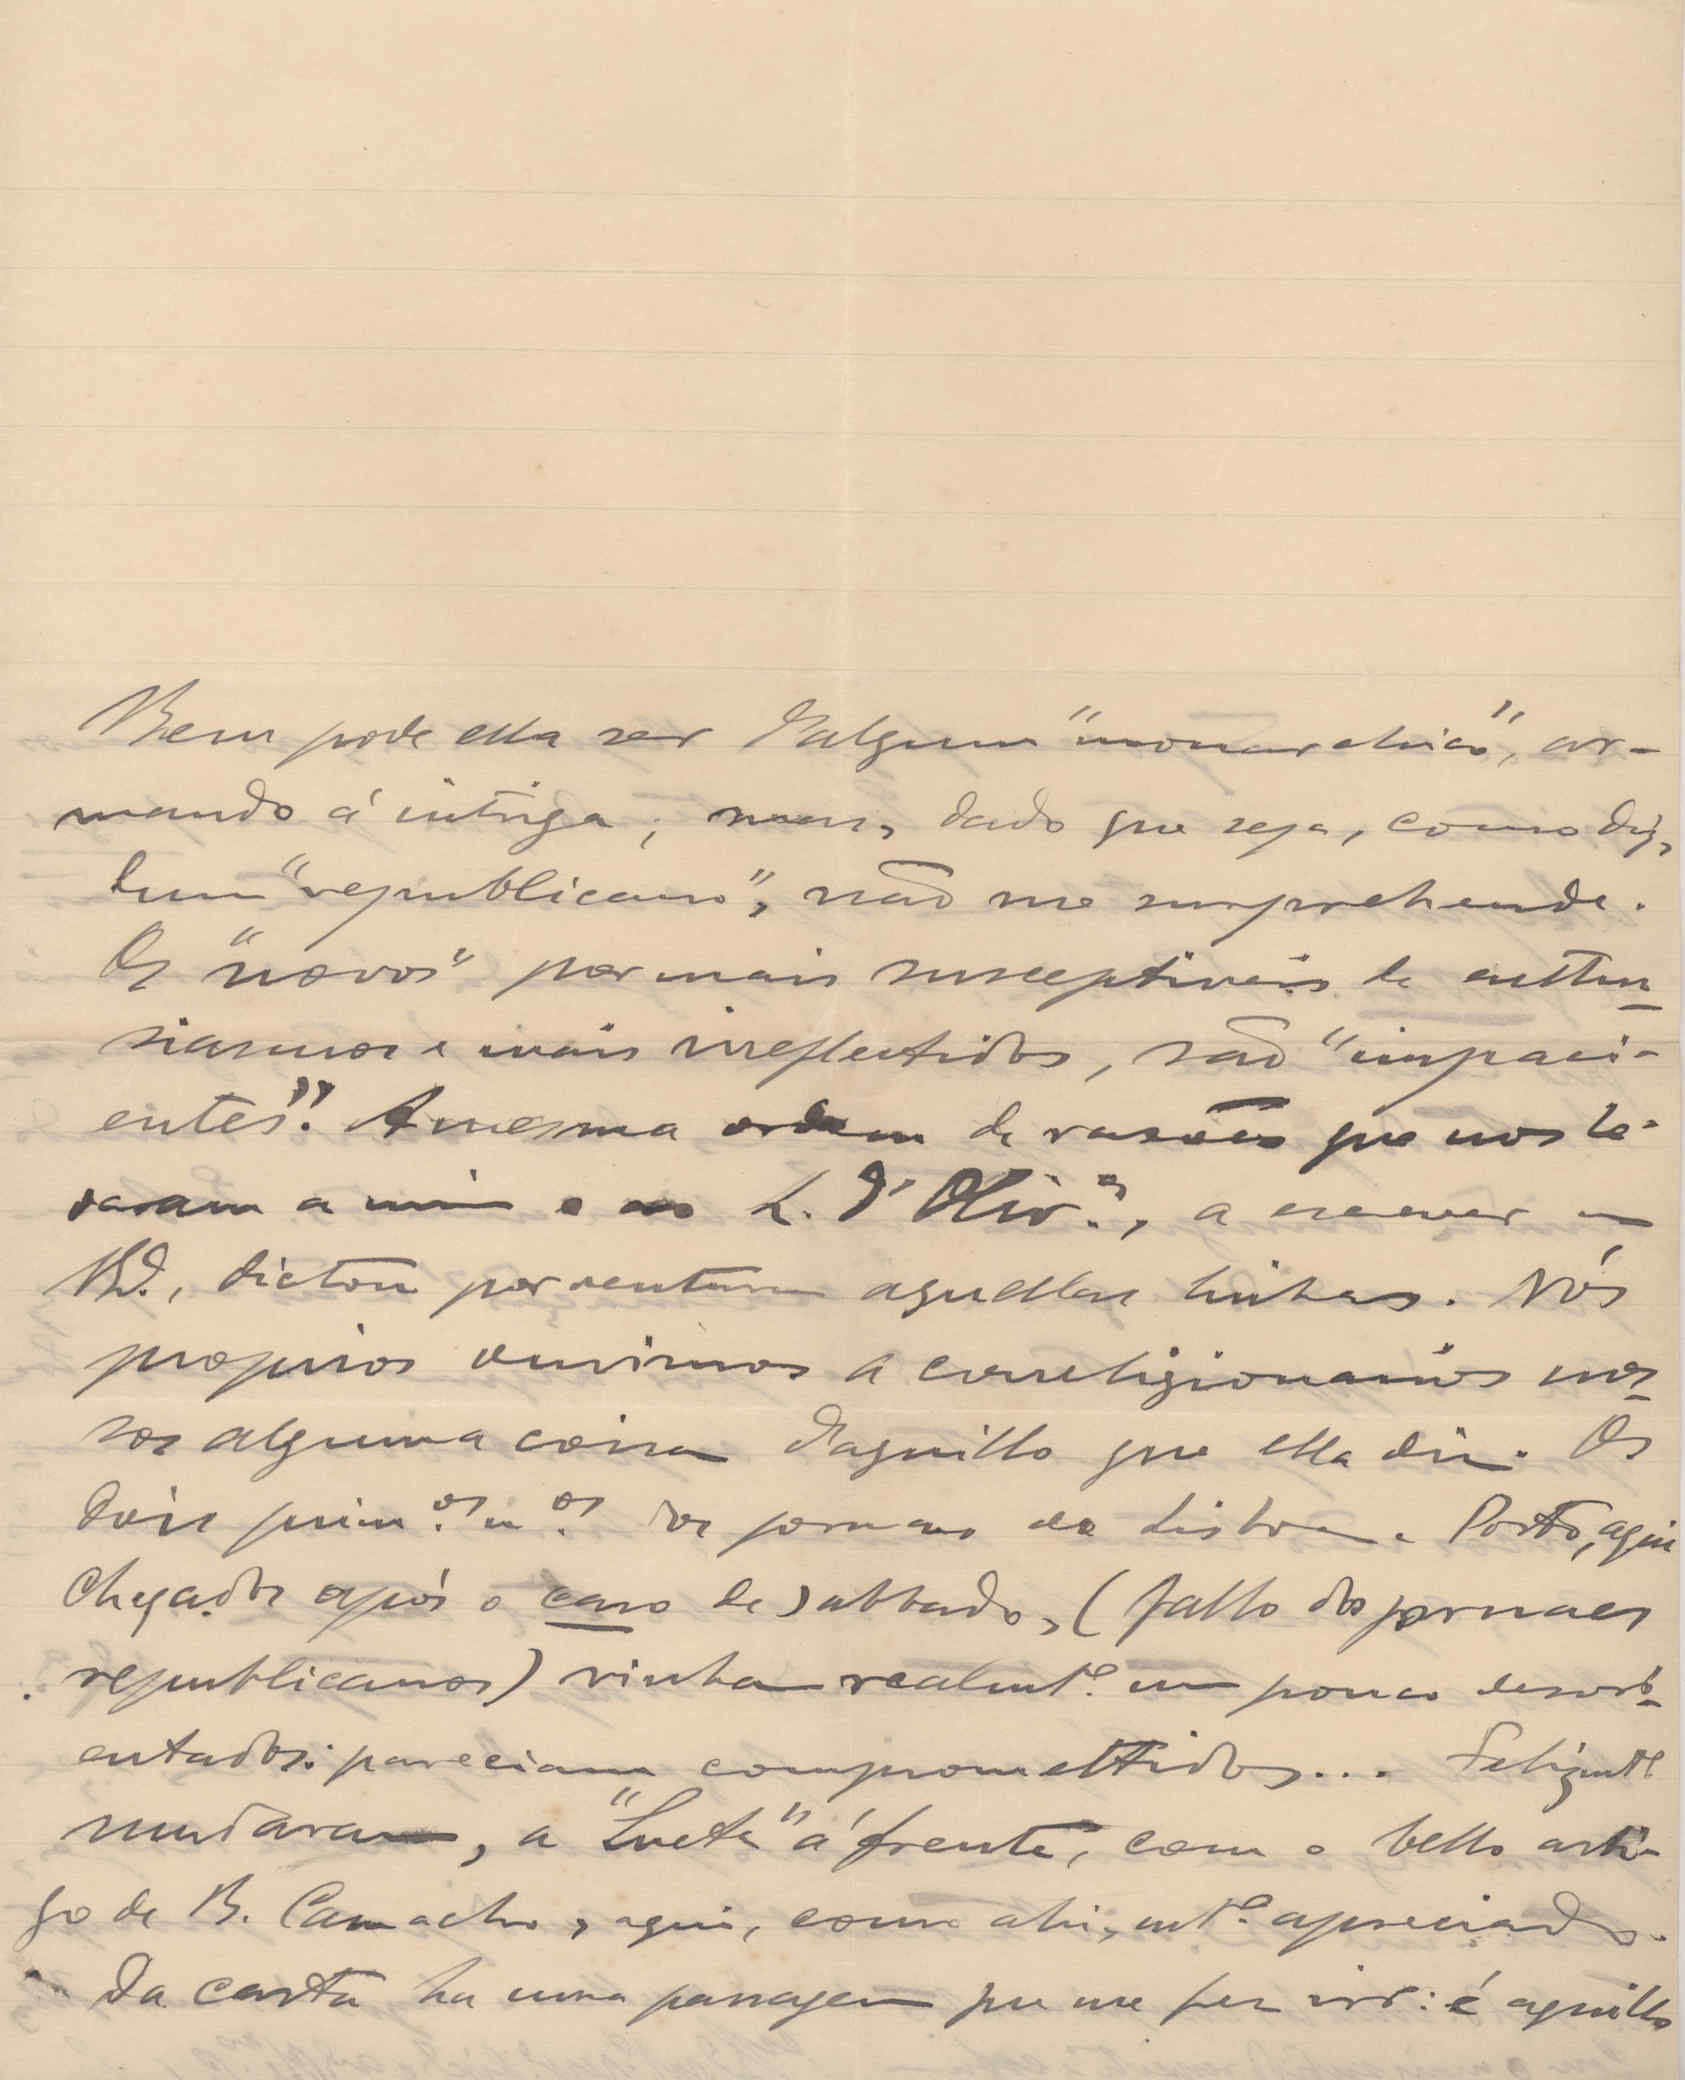 Bem pode ella ser d'algum "monarchico", ar-
mando á intriga; mas, dado que seja, como diz,
dum "republicano", não me surprehende.
Os "novos" por mais susceptiveis de enthu-
siasmos e mais irreflectidos, são "impaci-
entes". A mesma ordem de rasões que nos le-
varam a mim e ao L. d'Oliv.ª, a escrever a
V. , dictou porventura aquellas linhas. Nós
proprios ouvimos a correligionarios nos-
sos alguma coisa d'aquillo que ella diz. Os
dois prim.os n.os dos jornaes de Lisboa e Porto, aqui
chegados após o caso de sabbado, (fallo dos jornaes
republicanos) vinham realmt.e um pouco desori-
entados: pareciam compromettidos... Felizmt.e
mudaram, a "Lucta" á frente, com o bello arti-
go de B. Camacho, aqui, como ahi, mt.o apreciado.
Da carta ha uma passagem que me fez rir: é aquillo